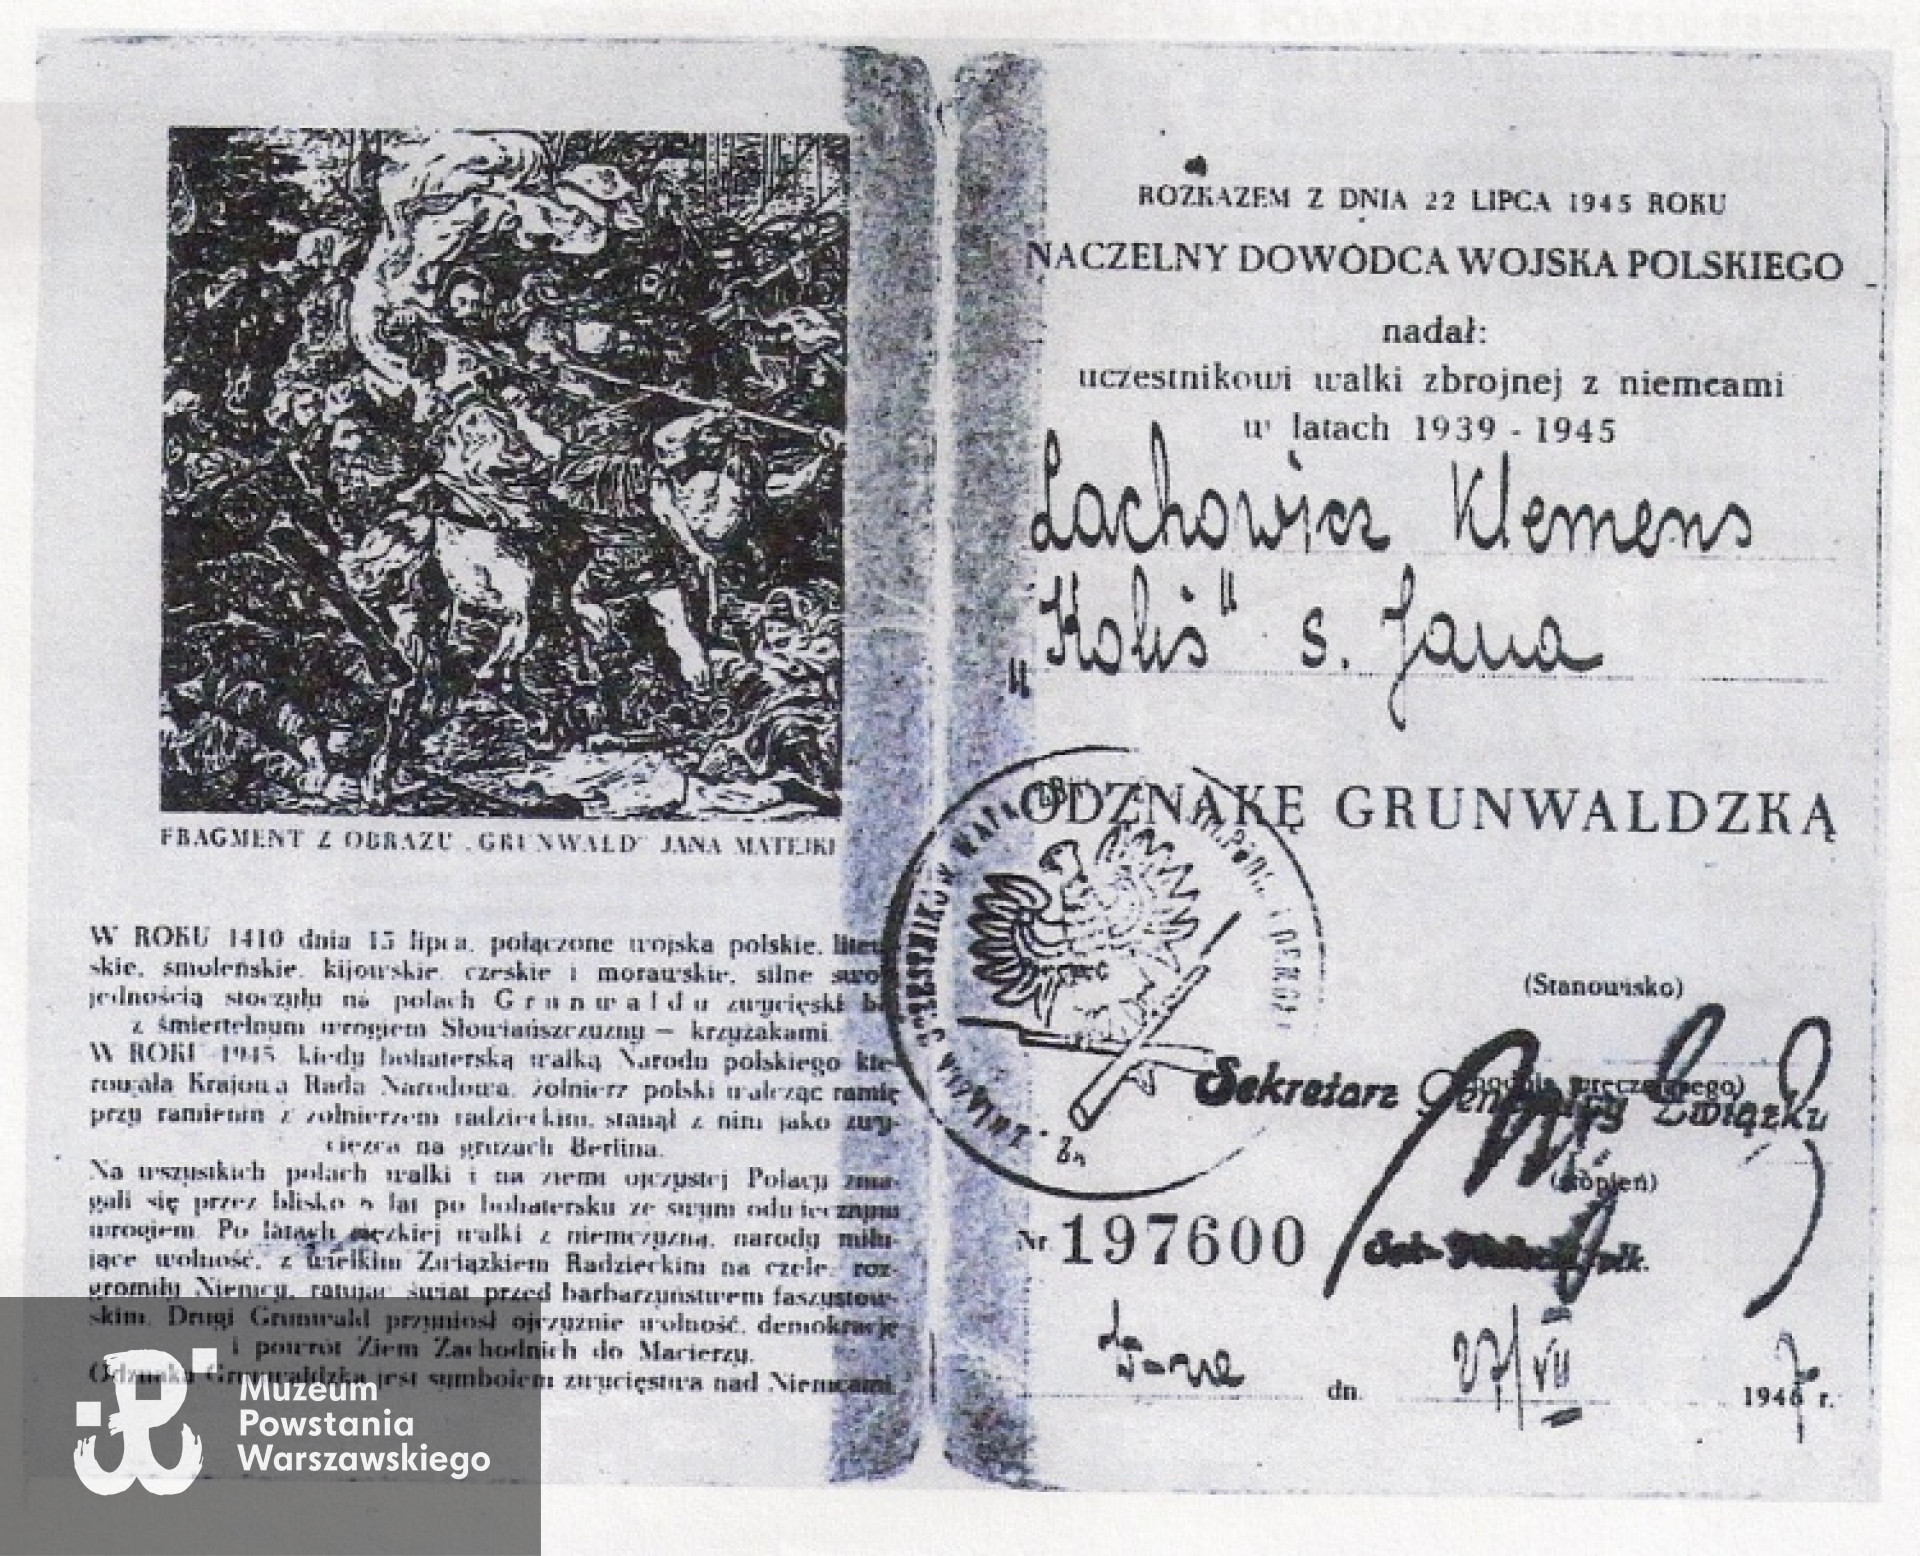 FRAGMENT Z OBRAZU „GRUNWALD" JANA MATEJKI
W ROKU 1410 dnia 15 lipca, połączone wojska polskie, litew-
skie, smoleńskie, kijowskie, czeskie i morawskie, silne swoją
jednością stoczyły na polach Grunwaldu zwycięski bój
z śmiertelnym wrogiem Słowiańszczyzny — krzyżakami.
W ROKU 1945, kiedy bohaterską walką Narodu polskiego kie-
rowała Krajowa Rada Narodowa, żołnierz polski walcząc ramię
przy ramieniu z żołnierzem radzieckim, stanął z nim jako zwy-
cięzca na gruzach Berlina.
Na wszystkich polach walki i na ziemi ojczystej Polacy zma-
gali się przez blisko 6 lat po bohatersku ze swym odwiecznym
wrogiem. Po latach ciężkiej walki z niemczyzną, narody miłu-
jące wolność, z wielkim Związkiem Radzieckim na czele, roz-
gromiły Niemcy, ratując świat przed barbarzyństwem faszystow-
skim. Drugi Grunwald przyniósł ojczyźnie wolność, demokrację
i powrót Ziem Zachodnich do Macierzy.
Odznaka Grunwaldzka jest symbolem zwycięstwa nad Niemcami.
Muzeum
Powstania
Warszawskiego
ROZKAZEM Z DNIA 22 LIPCA 1945 ROKU
NACZELNY DOWÓDCA WOJSKA POLSKIEGO
nadał:
uczestnikowi walki zbrojnej z niemcami
w latach 1939 - 1945
Lachowicz Klemens
„Koliś" s. Jana
ODZNAKĘ GRUNWALDZKĄ
(Stanowisko)
Sekretarz Generalny Związku
(stopień)
Nr. 197600
W-wa dn. 27/VII 1947 r.